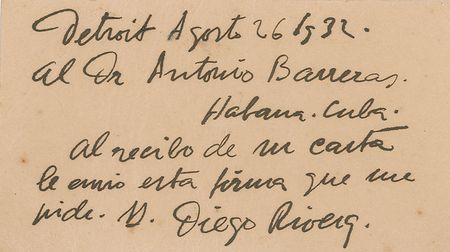 Detroit Agosto 26 1932.
al Dr Antonio Barreras.
Habana. Cuba.
al recibo de su carta
le envio esta firma que me
pide. D. Diego Rivera.